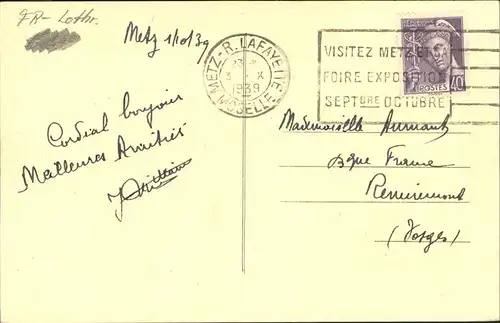 FR - Lothr.
Metz 1/10/39
METZ-R. LAFAYETTE
3 X
1939
MOSELLE
VISITEZ METZ ET
FOIRE EXPOSITION
SEPTURE OCTUBRE
POSTES 40
Cordial bonjour
Meilleures Amitiés
Mademoiselle
Bque France
Remiremont
(Vosges)